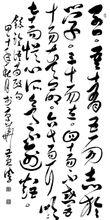 子曰吾十有五而志于
學三十而立四十而不惑五
十而知天命六十而耳順
七十而從心所欲不踰矩